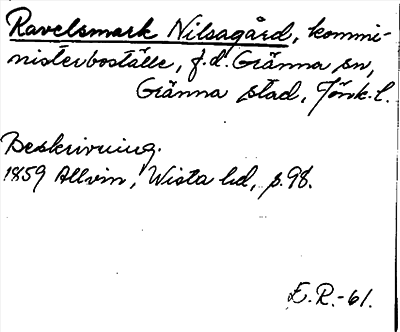 Ravelsmark Nilsagård, kommi-
nisterboställe, f.d. Gränna sn,
Gränna stad, Jönk.l.
Beskrivning.
1859 Allvin, Wista hd, s.98.
E.R.-61.